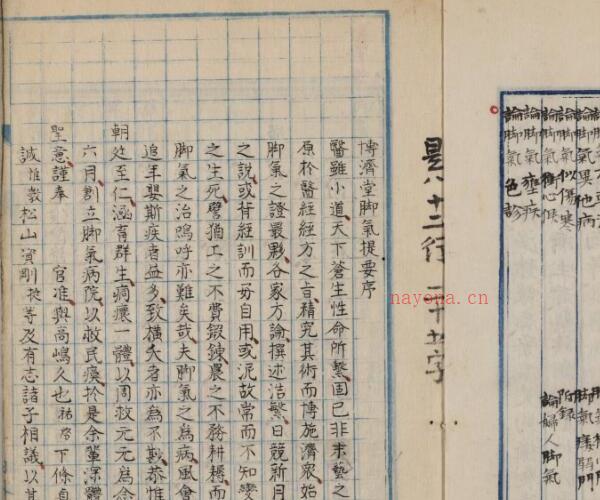 論脚氣異他病
論脚氣似傷寒
論脚氣衝心候
論脚氣壅疾
論脚氣色診
附録
論婦人脚氣
十二行
nayona.cn
博濟堂脚氣提要序
醫雖小道天下蒼生性命所繫固已非末藝之
原於醫經經方之旨精究其術而博施濟衆始
脚氣之證最夥各家方論撰述浩繁日競新月
之說或背經訓而妄自用或泥故常而不知變
之生死譬猶工之不費鍛鍊農之不務耕耨而
脚氣之治嗚呼亦難矣哉夫脚氣之為病風會
追年嬰斯疾者益多致橫夭者亦為不尠恭惟
朝廷至仁涵育群生痌瘝一體以周救元元為念
六月創立脚氣病院以救民瘼於是余輩深體
聖意謹奉 官准與高嶋久也祐啓下條自
誠惟敦松山寅剛挺等及有志諸子相議以其